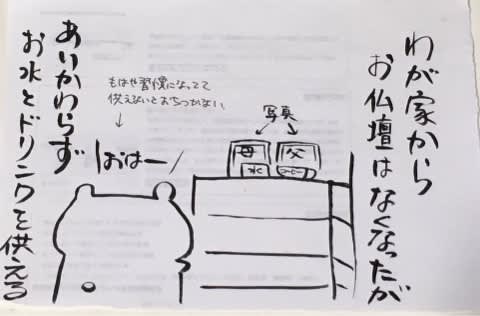 わが家から
お仏壇はなくなったが
写真
母
父
水
コーヒー
もはや習慣になってて
供えないとおちつかない
おはー
あいかわらず
お水とドリンクを供える